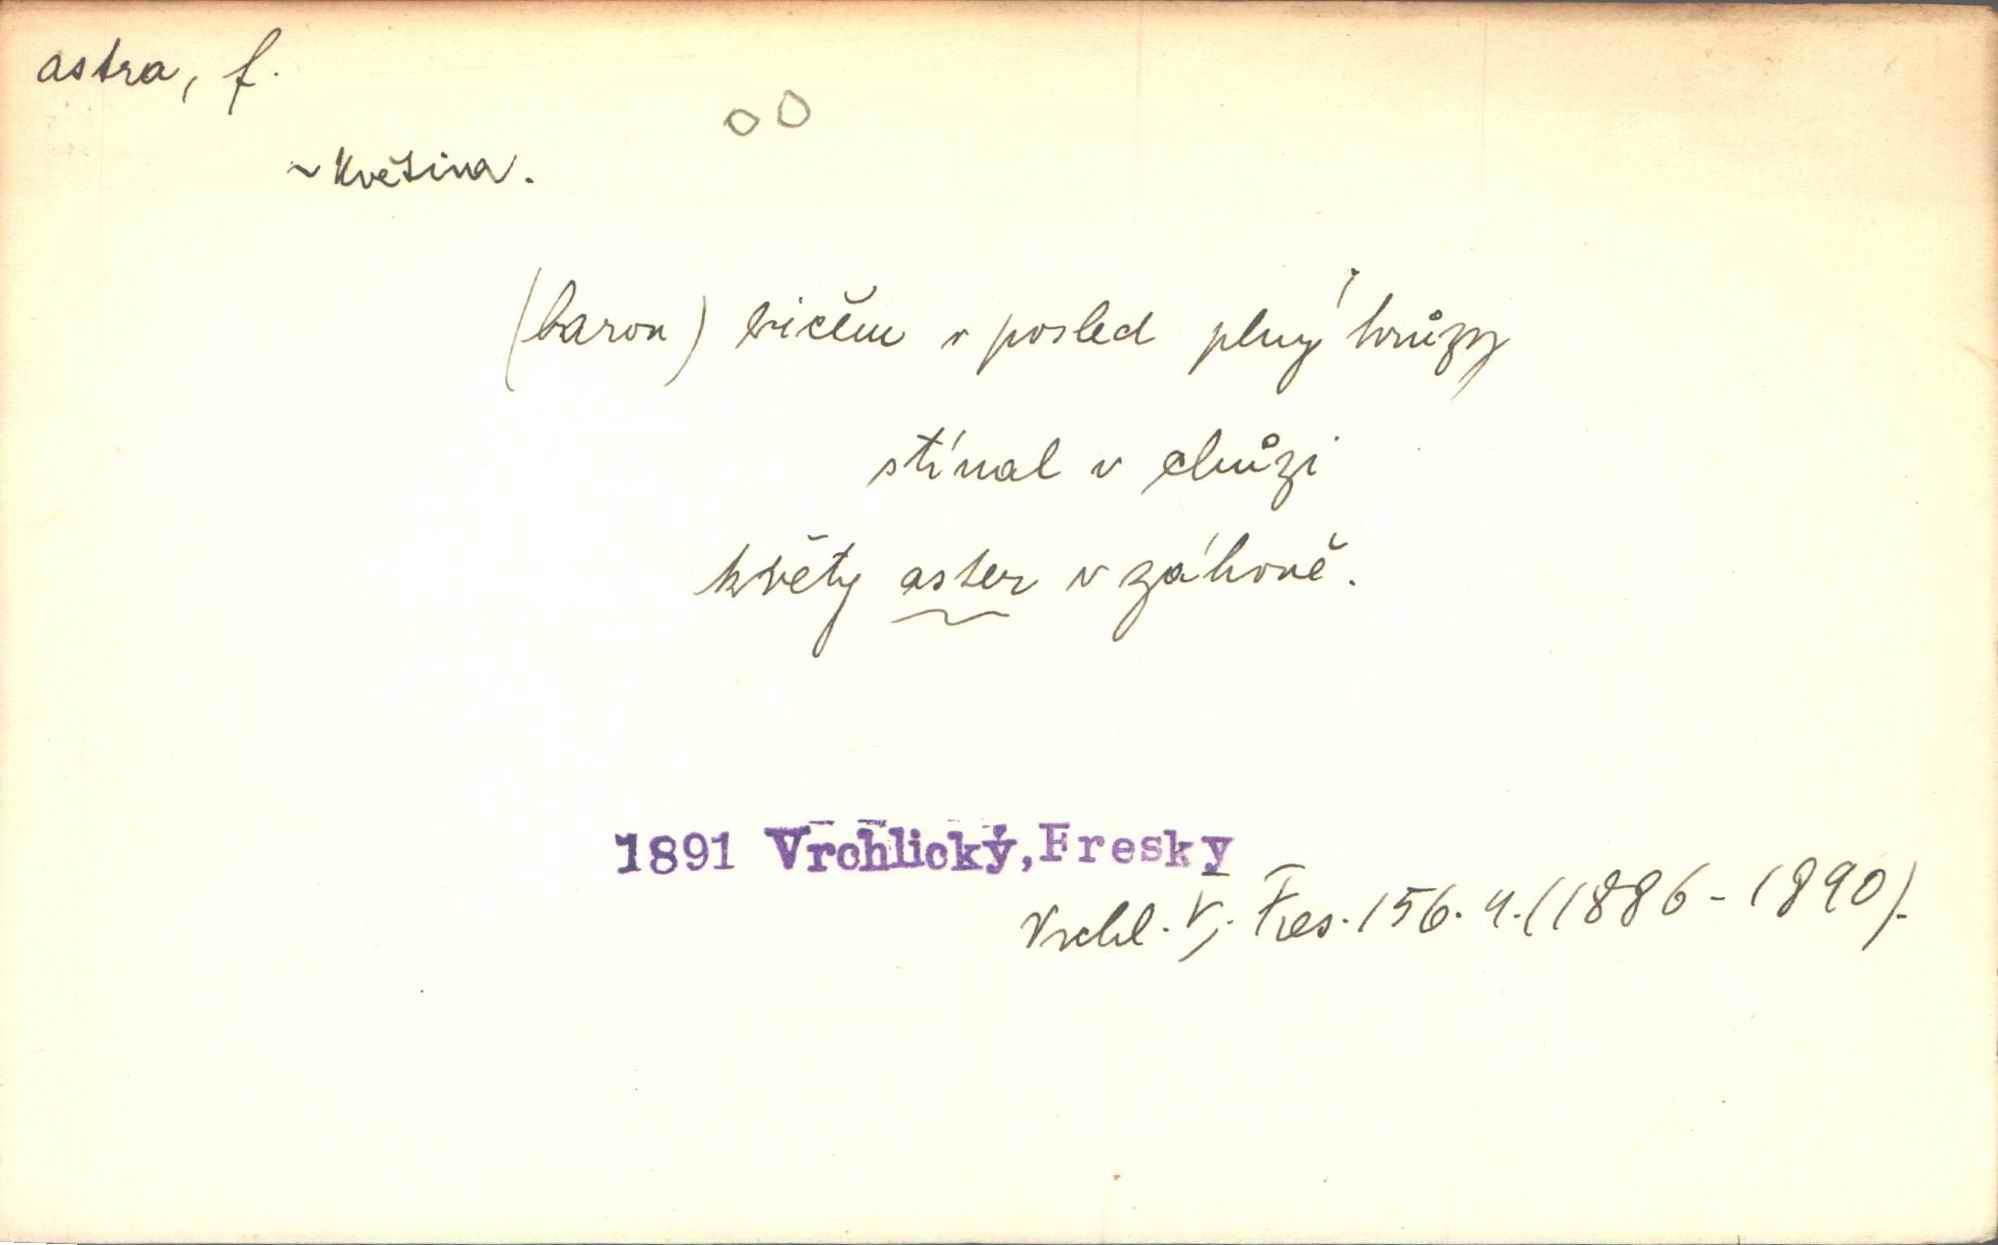 astra, f.
~ květina.
(baron) bičem v posled plný hrůzy
stínal v chůzi
květy aster v záhoně.
1891 Vrchlický, Fresky
Vrchl. V, Fres. 156. 4. (1886-1890).